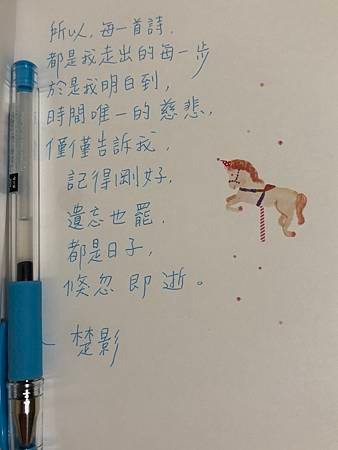 所以，每一首詩，
都是我走出的每一步
於是我明白到，
時間唯一的慈悲，
僅僅告訴我，
記得剛好，
遺忘也罷，
都是日子，
倏忽即逝。
～楚影